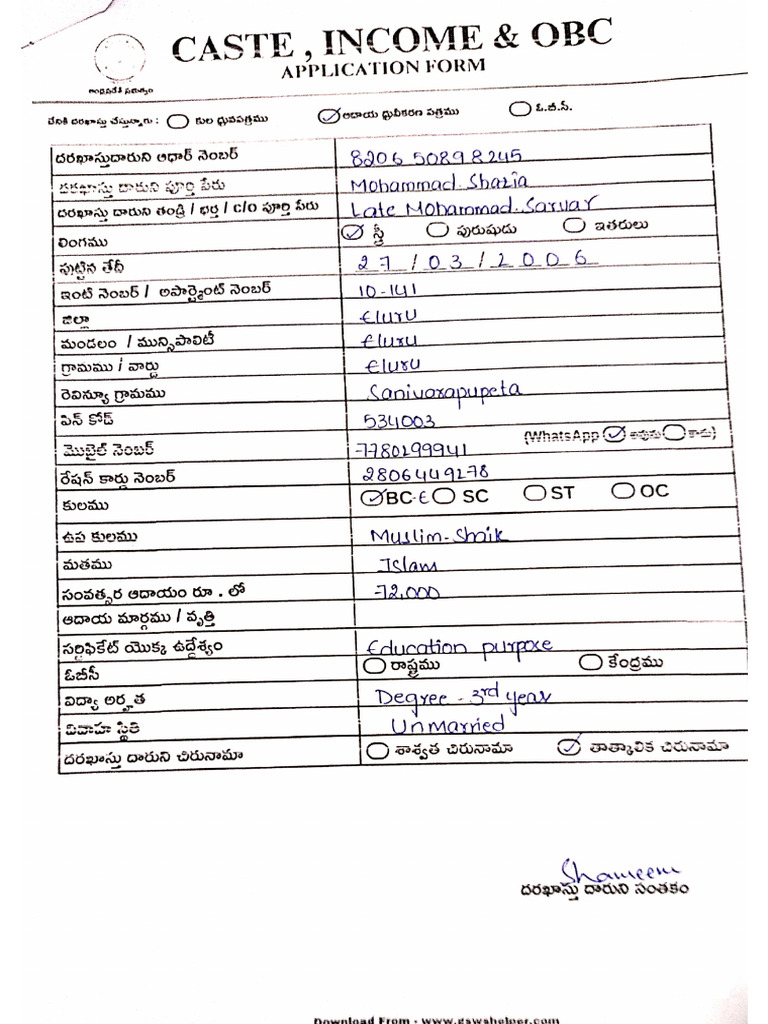 CASTE , INCOME & OBC
APPLICATION FORM
ఆంధ్రప్రదేశ్ ప్రభుత్వం
దేనికి దరఖాస్తు చేస్తున్నారు : కుల ధ్రువపత్రము ఆదాయ ధ్రువీకరణ పత్రము ఓ.బి.సి.
దరఖాస్తుదారుని ఆధార్ నెంబర్ 8206 5089 8245
దరఖాస్తు దారుని పూర్తి పేరు Mohammad. Shazia
దరఖాస్తు దారుని తండ్రి / భర్త / c/o పూర్తి పేరు Late Mohammad. Sarwar
లింగము స్త్రీ పురుషుడు ఇతరులు
పుట్టిన తేదీ 27/03/2006
ఇంటి నెంబర్ / అపార్ట్మెంట్ నెంబర్ 10-141
జిల్లా Eluru
మండలం / మున్సిపాలిటీ Eluru
గ్రామము / వార్డు Eluru
రెవిన్యూ గ్రామము Sanivarapupeta
పిన్ కోడ్ 534003
మొబైల్ నెంబర్ 7780299941 (WhatsApp అవును కాదు)
రేషన్ కార్డు నెంబర్ 2806449278
కులము BC-E SC ST OC
ఉప కులము Muslim-Shaik
మతము Islam
సంవత్సర ఆదాయం రూ . లో 72,000
ఆదాయ మార్గము / వృత్తి
సర్టిఫికేట్ యొక్క ఉద్దేశ్యం Education purpose
ఓబీసీ రాష్ట్రము కేంద్రము
విద్యా అర్హత Degree - 3rd year
వివాహ స్థితి Unmarried
దరఖాస్తు దారుని చిరునామా శాశ్వత చిరునామా తాత్కాలిక చిరునామా
Shameem
దరఖాస్తు దారుని సంతకం
Download From - www.gswshelper.com